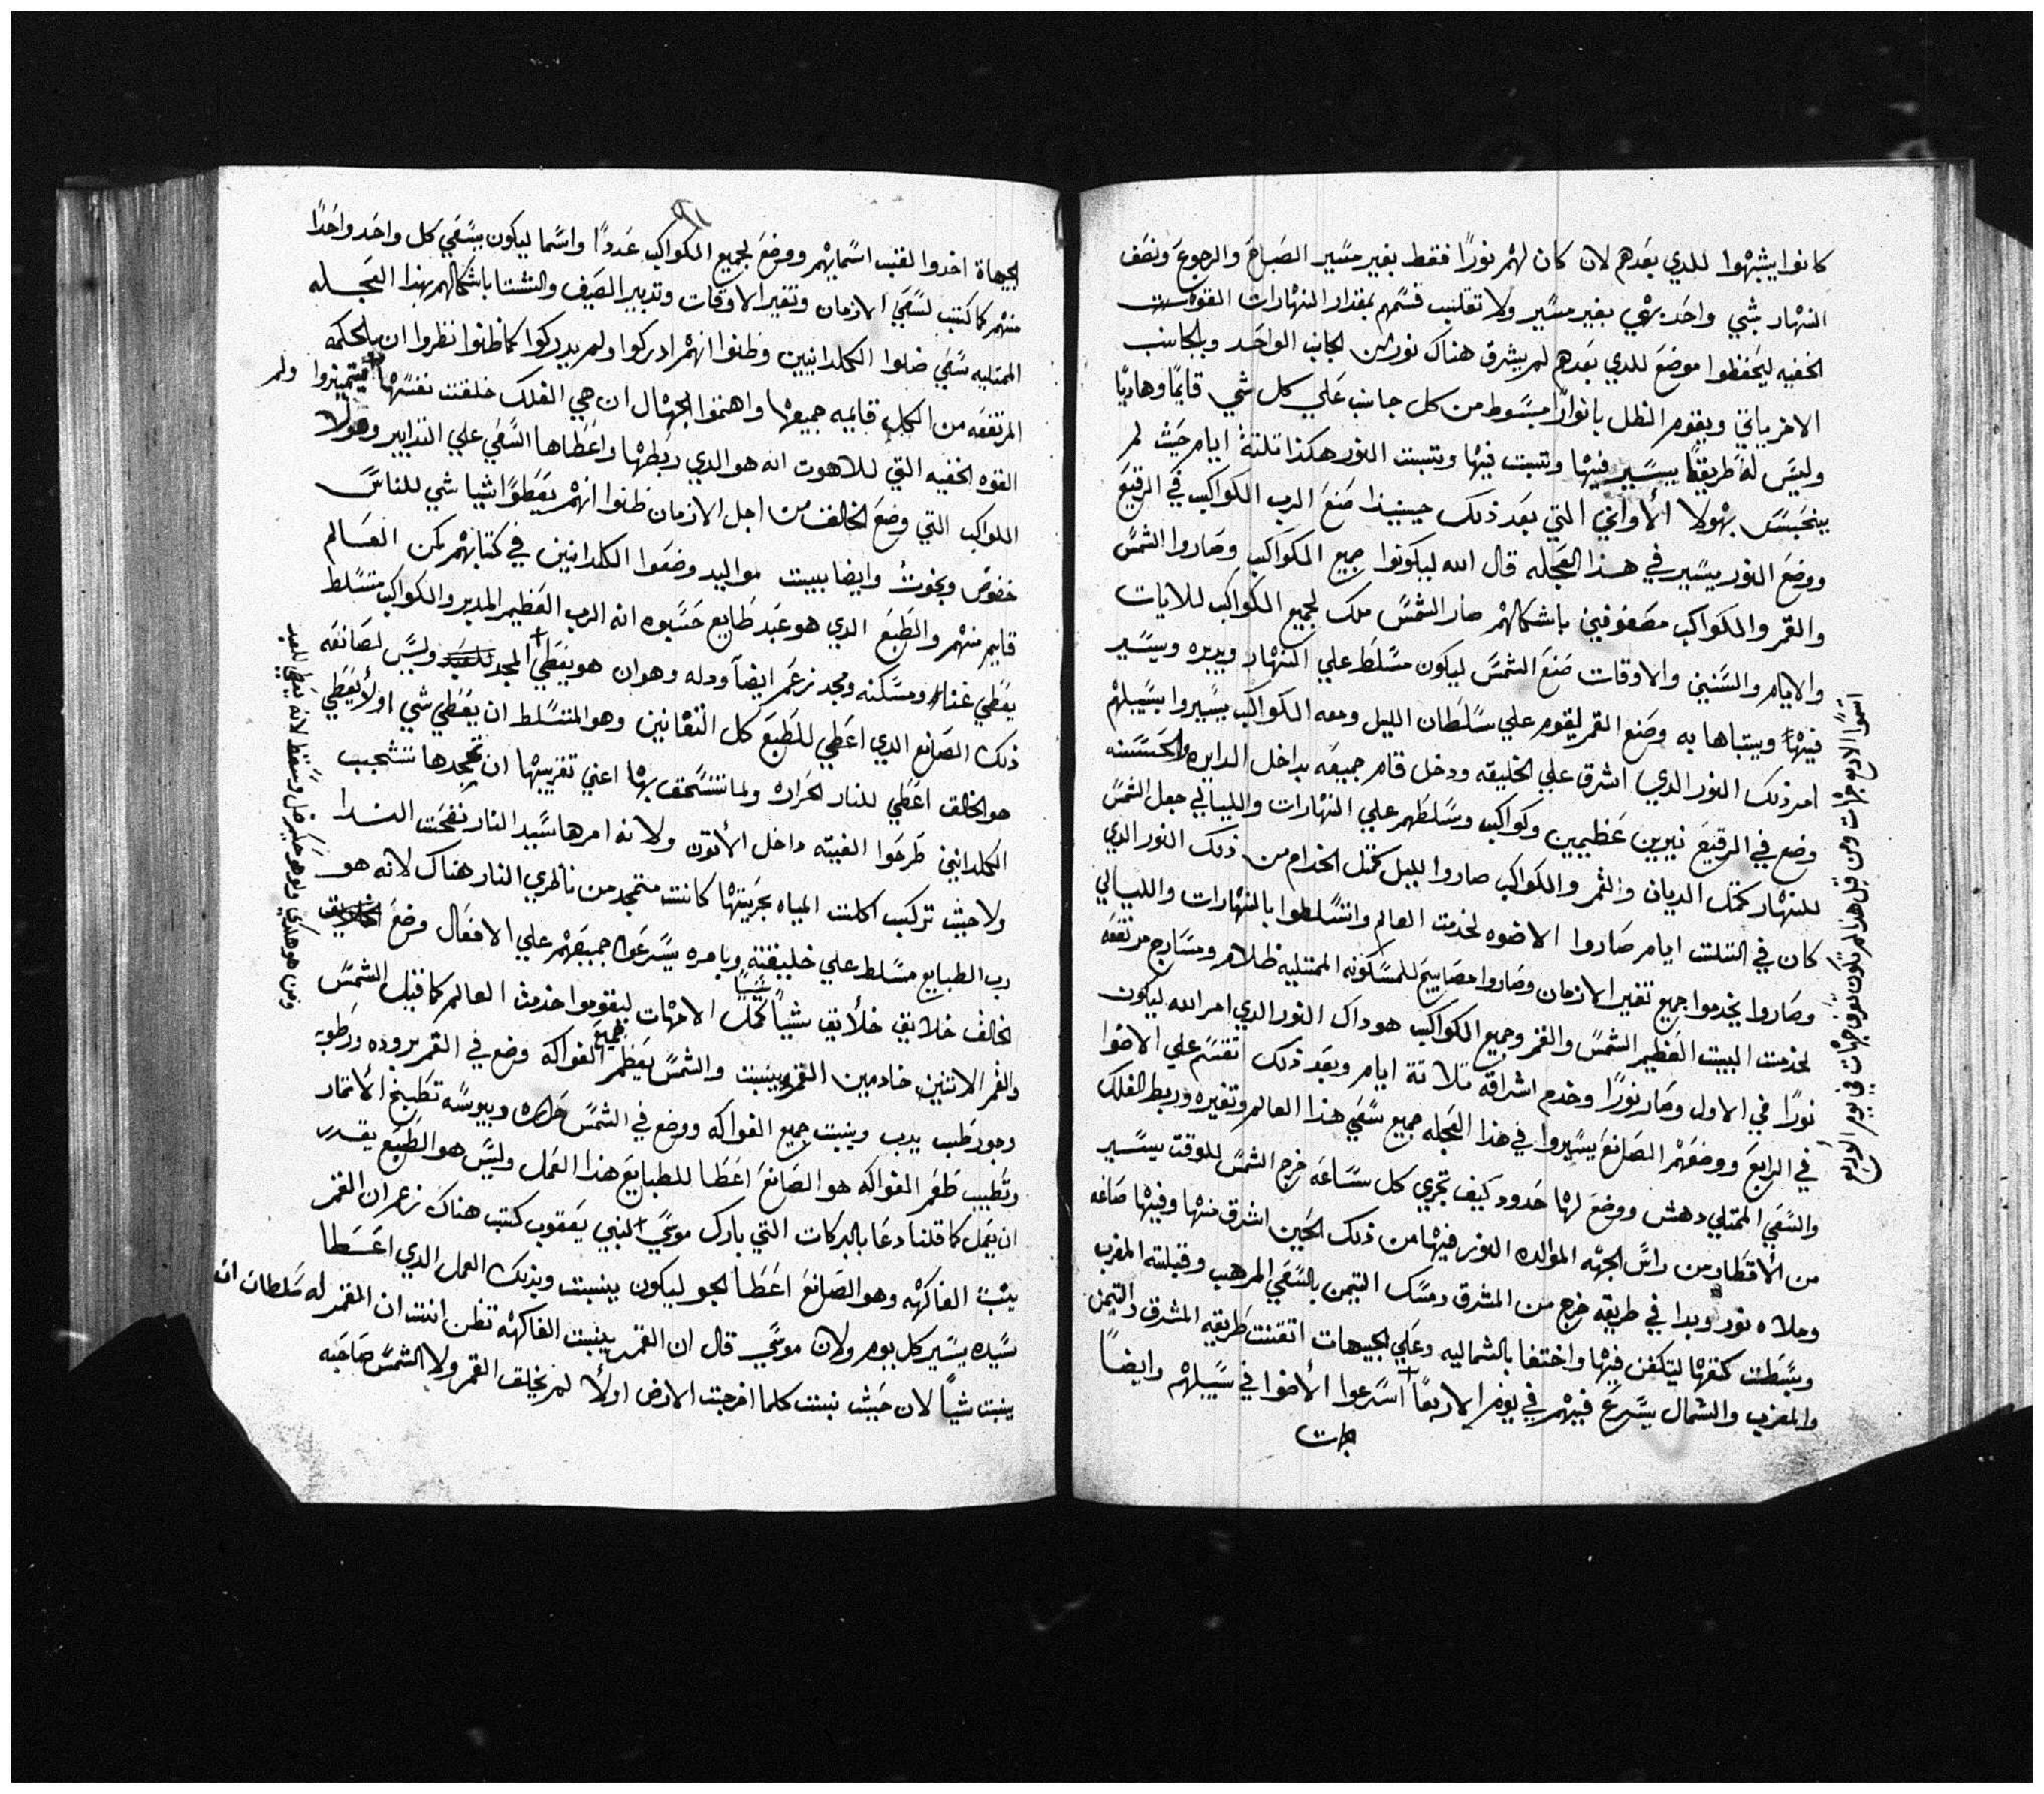 كانوا يشبهوا للدي بعدهم لان كان لهم نورًا فقط بغير مسير الصباح والرجوع ونصف
النهار بشي واحد بهي بغير مسير ولا تقليب قسمهم بمقدار النهارات القوه
الخفيه ليحفظوا موضع للدي بعدهم لم يشرق هناك نور من الجانب الواحد وبالجانب
الاخر ياتي ويقوم الظل بانوارًا مبسوط من كل جانب علي كل شي قايمًا وهاديًا
وليس له طريقًا يسير فيها وتتبت فيها وتتبت النور هكذا تلتة ايام حيث لم
ينحبس بهولا الأواني التي بعد ذلك حينيذا صنع الرب الكواكب في الرقيع
ووضع النور يسير في هذا العجله قال الله ليكونوا جميع الكواكب وصاروا الشمس
والقمر والكواكب مصفوفين باشكالهم صار الشمس ملك لجميع الكواكب للايات
والايام والسنين والاوقات صنع الشمس ليكون مسلط علي النهار ويدبره ويسير
فيها ويتباها به وصنع القمر ليقوم علي سلطان الليل ومعه الكواكب يسيروا بسبيلهم
امر ذلك النور الدي اشرق علي الخليقه ودخل قام جميعه بداخل الدايره والحسنه
وضع في الرقيع نيرين عظيمين وكواكب وسلطهم علي النهارات والليالي جعل الشمس
للنهار كمتل الديان والقمر والكواكب صاروا لليل كمتل الخدام من ذلك النور الدي
كان في التلت ايام صاروا الاضوه لخدمت العالم واتسلطوا بالنهارات والليالي
وصاروا يخدموا جميع تغير الازمان وصاروا مصابيح للمسكونه الممتليه ظلام ومسارج مرتفعه
لخدمت البيت العظيم الشمس والقمر وجميع الكواكب هو داك النور الدي امر الله ليكون
نورًا في الاول وصار نورًا وخدم اشراقه تلاتة ايام وبعد ذلك تقسم علي الاضوا
في الرابع ووضعهم الصانع يسيروا في هذا العجله جميع سعي هذا العالم وتغيره وربط الفلك
والسعي الممتلي دهش ووضع لها حدود كيف تجري كل سساعه خرج الشمس للوقت يسير
من الأقطار من راس الجهه الموالده النور فيها من ذلك الحين اشرق منها وفيها صاغه
وملاه نور وبدا في طريقه خرج من المشرق ومسك التيمن بالسعي المرهب وقبلته المغرب
وبسطت كنفها ليتكفن فيها واختفا بالشماليه وعلي الجيهات اتقنت طريقه المشرق والتيمن
والمغرب والشمال يسرع فيهم في يوم الاربعا اسرعوا الأضوا في سبيلهم وايضًا
استوا الاربع جهات ومن قبل هذا لم يكون تعرف جهات في يوم الاربع
الجيهاة اخدوا لقب اسمايهم ووضع لجميع الكواكب عددًا واسما ليكون بسعي كل واحد واحدًا
منهم كما كتب لسعي الازمان وتغير الاوقات وتدبير الصيف والشتا باشكالهم بهذا العجله
الممتليه سعي ضلوا الكلدانيين وظنوا انهم ادركوا ولم يدركوا كما ظنوا نظروا ان بالحكمه
المرتفعه من الكل قايمه جميعها واهتموا الجهال ان هي الفلك خلقت نفسها فيتميزوا ولم
القوه الخفيه التي للاهوت انه هو الدي ربطها واعطاها السعي علي التدابير وهولا
الكواكب التي وضع الخالق من اجل الازمان ظنوا انهم يعطوا اشيا شي للناس
حضوض وبخوت وايضا ببيت مواليد وضعوا الكلدانيين في كتابهم كمن العالم
قايم منهم والطبع الدي هو عبد طايع حسبوه انه الرب العظيم المدبر والكواكب متسلط
يعطي غناء ومسكنه ومجد نزعم ايضًا ودله وهوان هو يعطي المجد وليس لصانعه
ذلك الصانع الدي اعطي للطبع كل التقانين وهو المتسلط ان يعطي شي اولأ يعطي
هو الخالق اعطي للنار الحراره ولما تستحق بها اعني تقريبها ان تجمدها تستجيب
الكلدانيين طرحوا الفتيه داخل الأتون ولانه امرها سيد النار نفحت الندا
ولا حيث تركب اكلت المياه بجريتها كانت متجمد من ناظري النار هناك لانه هو
رب الطبايع مسلط علي خليقته وبامره يسرعوا جميعهم علي الافعال وضع
الخالق خلايق خلأيق شيأ شيئًا كمتل الامهات ليقوموا خدمة العالم كما قبل الشمس
والقمر الاتنين خادمين القمر ينبت والشمس يعظم جميع الفواكه وضع في القمر بروده ورطوبه
وجو رطيب يدب وينبت جميع الفواكه ووضع في الشمس حراره ويبوسه تطبخ الأتمار
وتطيب طعم الفواكه هو الصانع اعطا للطبايع هذا العمل وليس هو الطبع يقدر
ان يعمل كما قلنا دعا بالبركات التي بارك موسي النبي يعقوب كتب هناك نزعم ان القمر
ينبت الفاكهه وهو الصانع اعطا الجو ليكون ينبت وبذلك العمل الدي اعطا
سيده يسير كل يوم ولان موسي قال ان القمر ينبت الفاكهه تظن انت ان القمر له سلطان ان
ينبت شيأ لان حيث نبتت كلما اخرجت الارض اولأ لم يخلق القمر ولا الشمس صاحبه